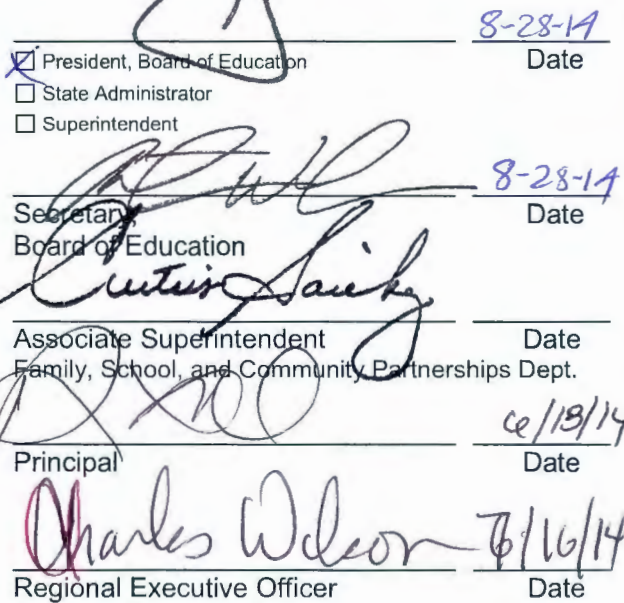 8-28-14
☑ President, Board of Education Date
☐ State Administrator
☐ Superintendent
8-28-14
Secretary, Date
Board of Education
Curtis
Associate Superintendent Date
Family, School, and Community Partnerships Dept.
Principal Date
Charles Wilson /16/14
Regional Executive Officer Date